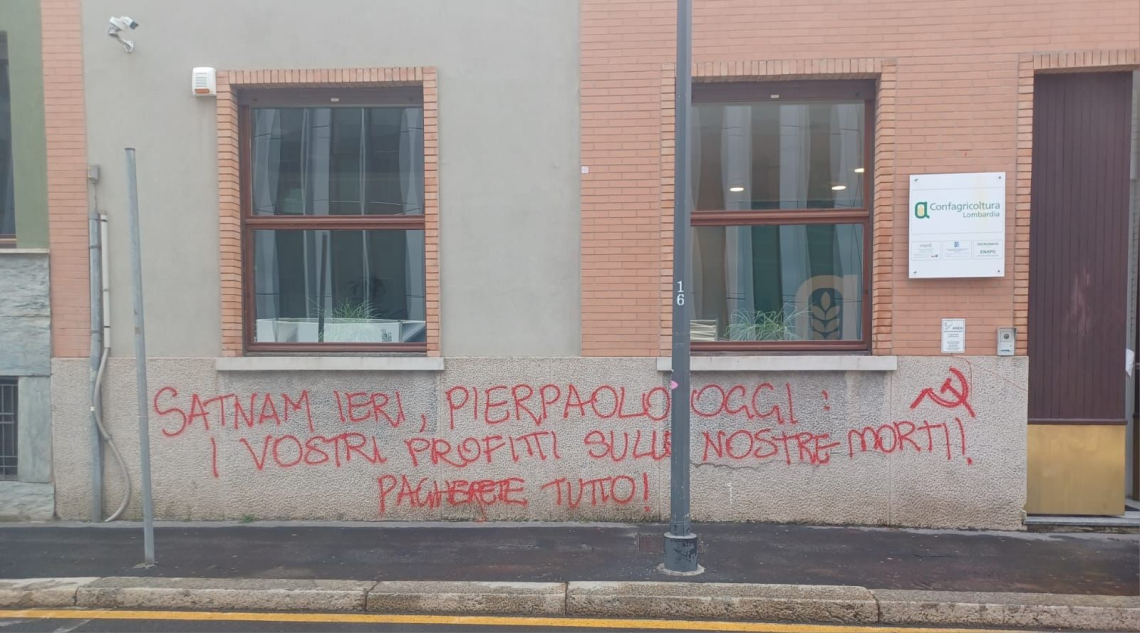 Confagricoltura
Lombardia
ENAPA
16
SATNAM IERI, PIERPAOLO OGGI:
I VOSTRI PROFITTI SULLE NOSTRE MORTI!
PAGHERETE TUTTO!